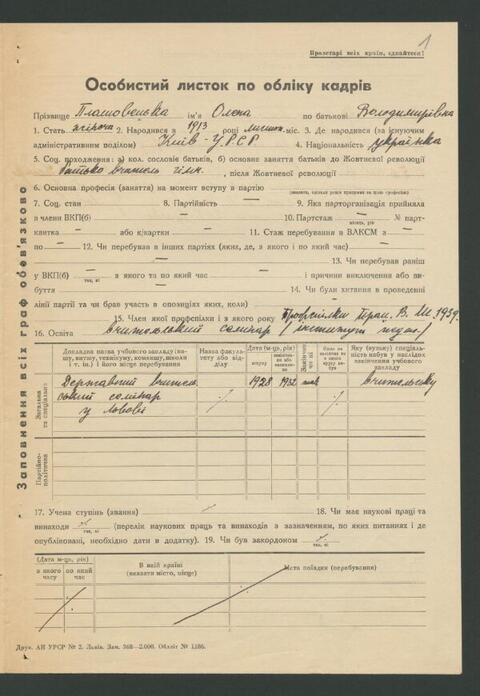 Пролетарі всіх країн, єднайтеся!
1
Особистий листок по обліку кадрів
Прізвище ім'я Олена по батькові Володимирівна
1. Стать жіноча 2. Народився в 1913 році міс. 3. Де народився (за існуючим
адміністративним поділом) Київ - УРСР 4. Національність українка
5. Соц. походження: а) кол. сословіє батьків, б) основне заняття батьків до Жовтневої революції
батько вчитель гімн., після Жовтневої революції
6. Основна професія (заняття) на момент вступу в партію —
7. Соц. стан — 8. Партійність — 9. Яка парторганізація прийняла
в члени ВКП(б) — 10. Партстаж — № парт-
квитка — або к/картки — 11. Стаж перебування в ВЛКСМ з —
по — 12. Чи перебував в інших партіях (яких, де, з якого і по який час) —
13. Чи перебував раніш
у ВКП(б) — з якого та по який час — і причини виключення або ви-
буття — 14. Чи були хитання в проведенні
лінії партії та чи брав участь в опозиціях яких, коли) —
15. Член якої профспілки і з якого року Профспілки Прац. В. Ш. 1939.
16. Освіта вчительський семінар
Заповнення всіх граф обов'язково
Докладна назва учбового закладу (ва-
шу, втишу, технікуму, комвишу, школи
і т. ін.) і його місце перебування
Назва факуль-
тету або від-
ділу
Дата (м-ць, рік)
вступу
Яку (вузьку) спеціаль-
ність набув у наслідок
закінчення учбового
закладу
Загальна
та спеціальна
Державний вчитель-
ський семінар
у Львові
1928 1932 так вчительську
Партійно-
політична
17. Учена ступінь (звання) — 18. Чи має наукові праці та
винаходи (перелік наукових праць та винаходів з зазначенням, по яких питаннях і де
опубліковані, необхідно дати в додатку). 19. Чи був закордоном
(Дата м-ць, рік)
з якого часу
по який час
В якій країні
(вказати місто, місце)
Мета поїздки (перебування)
Друк. АН УРСР № 2. Львів. Зам. 368—2.000. Обліт № 1186.